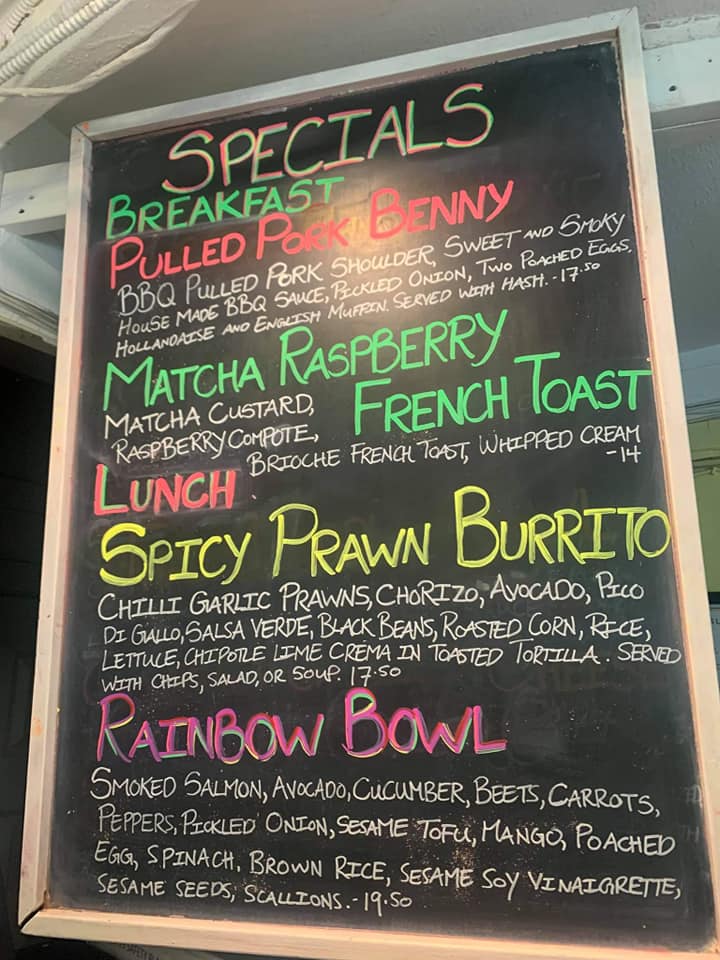 SPECIALS
BREAKFAST
PULLED PORK BENNY
BBQ PULLED PORK SHOULDER, SWEET AND SMOKY
HOUSE MADE BBQ SAUCE, PICKLED ONION, TWO POACHED EGGS,
HOLLANDAISE AND ENGLISH MUFFIN. SERVED WITH HASH. -17.50
MATCHA RASPBERRY
FRENCH TOAST
MATCHA CUSTARD,
RASPBERRY COMPOTE,
BRIOCHE FRENCH TOAST, WHIPPED CREAM
-14
LUNCH
SPICY PRAWN BURRITO
CHILLI GARLIC PRAWNS, CHORIZO, AVOCADO, PICO
DI GALLO, SALSA VERDE, BLACK BEANS, ROASTED CORN, RICE,
LETTUCE, CHIPOTLE LIME CREMA IN TOASTED TORTILLA. SERVED
WITH CHIPS, SALAD, OR SOUP. 17.50
RAINBOW BOWL
SMOKED SALMON, AVOCADO, CUCUMBER, BEETS, CARROTS,
PEPPERS, PICKLED ONION, SESAME TOFU, MANGO, POACHED
EGG, SPINACH, BROWN RICE, SESAME SOY VINAIGRETTE,
SESAME SEEDS, SCALLIONS. -19.50